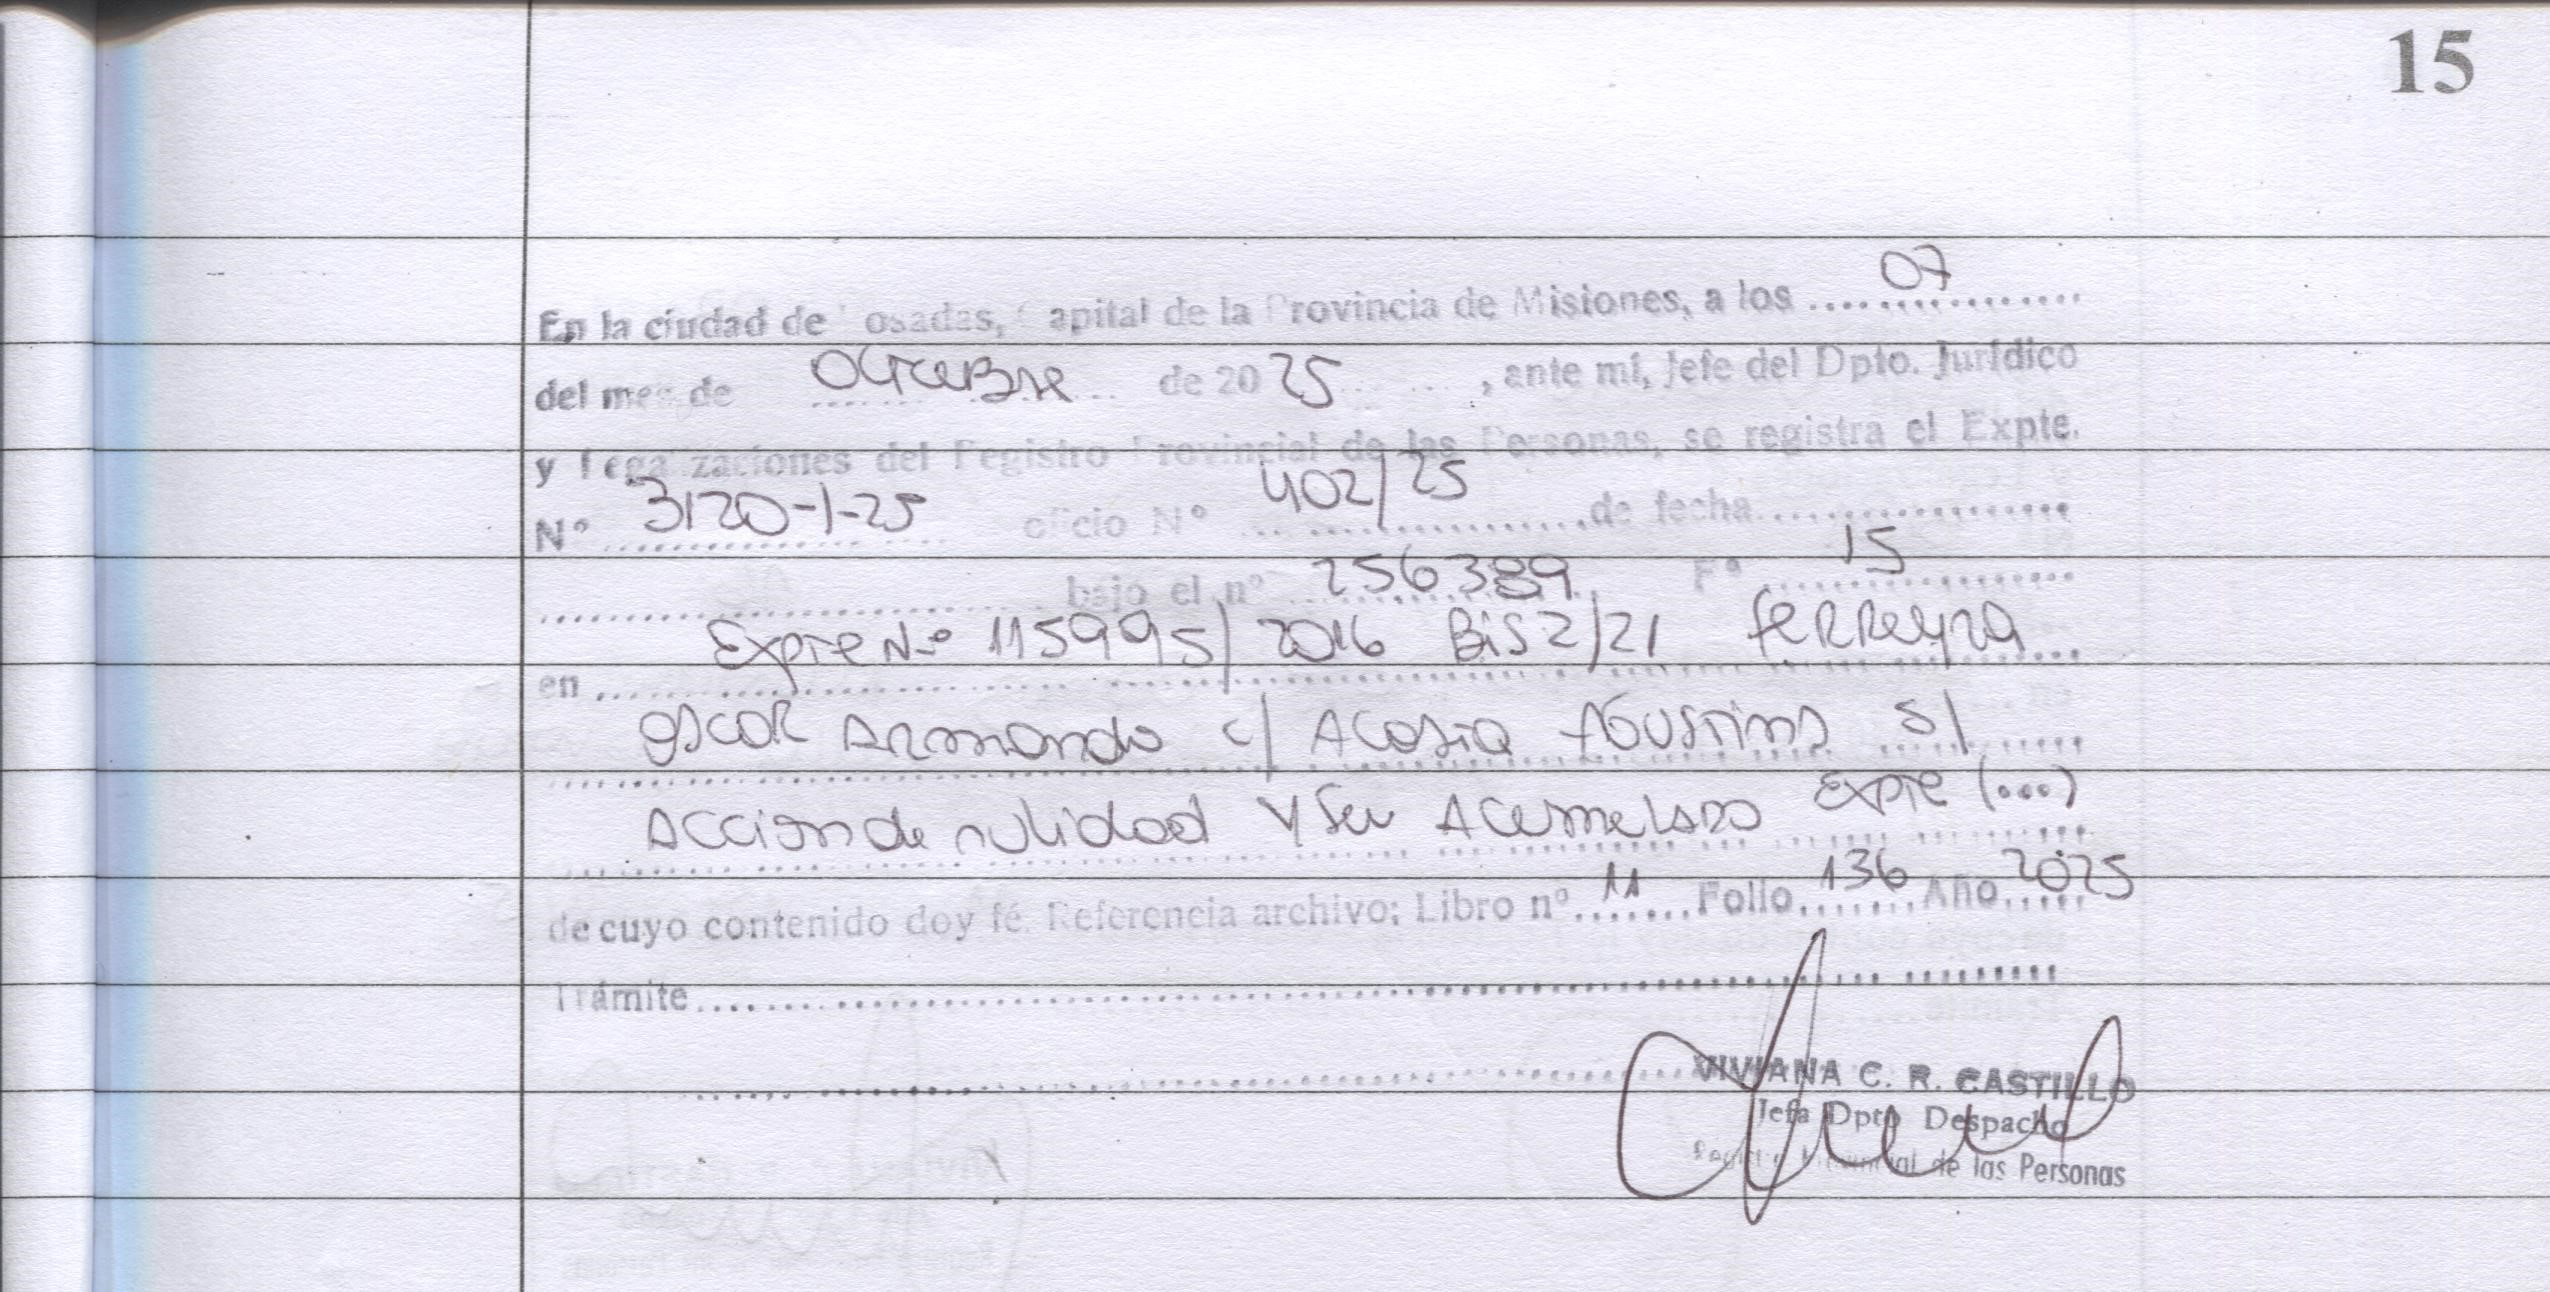 15
En la ciudad de Posadas, Capital de la Provincia de Misiones, a los 07
del mes de Octubre de 2025, ante mí, Jefe del Dpto. Jurídico
y Legalizaciones del Registro Provincial de las Personas, se registra el Expte.
N° 3120-1-25 oficio N° 402/25 de fecha
bajo el n° 256389 F° 15
en Expte N° 115995/2016 Bis2/21 Ferreyra
Oscar Armando c/ Acosta Agustina s/
Accion de nulidad y su Acumulado Expte (...)
de cuyo contenido doy fé. Referencia archivo; Libro n° 11 Folio 136 Año 2025
Trámite
VIVIANA C. R. CASTILLO
Jefa Dpto Despacho
Registro Provincial de las Personas